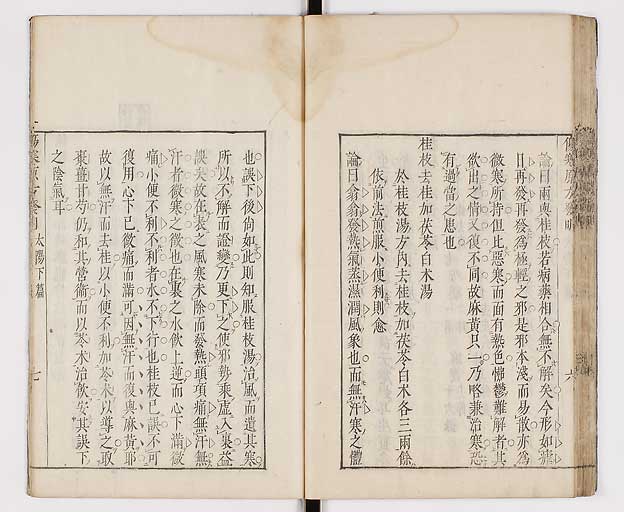 論曰兩與桂枝若病藥相合無不解矣今形如瘧
日再發再發爲極輕之邪是邪本淺而易散亦爲
微寒所持但比惡寒而面有熱色怫鬱難解者其
欲出之情又復不同故麻黃只一乃略兼治寒恐
有過當之患也
桂枝去桂加茯苓白朮湯
於桂枝湯方內去桂枝加茯苓白朮各三兩餘
依前法煎服小便利則愈
論曰翕翕發熱氣蒸濕潤風象也而無汗寒之體
也誤下後倘如此則知服桂枝湯治風而遺其寒
所以不解而證變乃更下之使邪勢乘虛入集益
誤矣故在表之風寒未除而發熱頭項痛無汗無
汗者微寒之徵也在裏之水飲上逆而心下滿微
痛小便不利不利者水不下行也桂枝已誤不可
復用心下已微痛而滿可因無汗而復與麻黃耶
故以無汗而去桂以小便不利加苓朮以導之取
棗薑甘芍仍和其營衛而以苓朮治飲安其誤下
之陰氣耳
太陽下篇
七
六